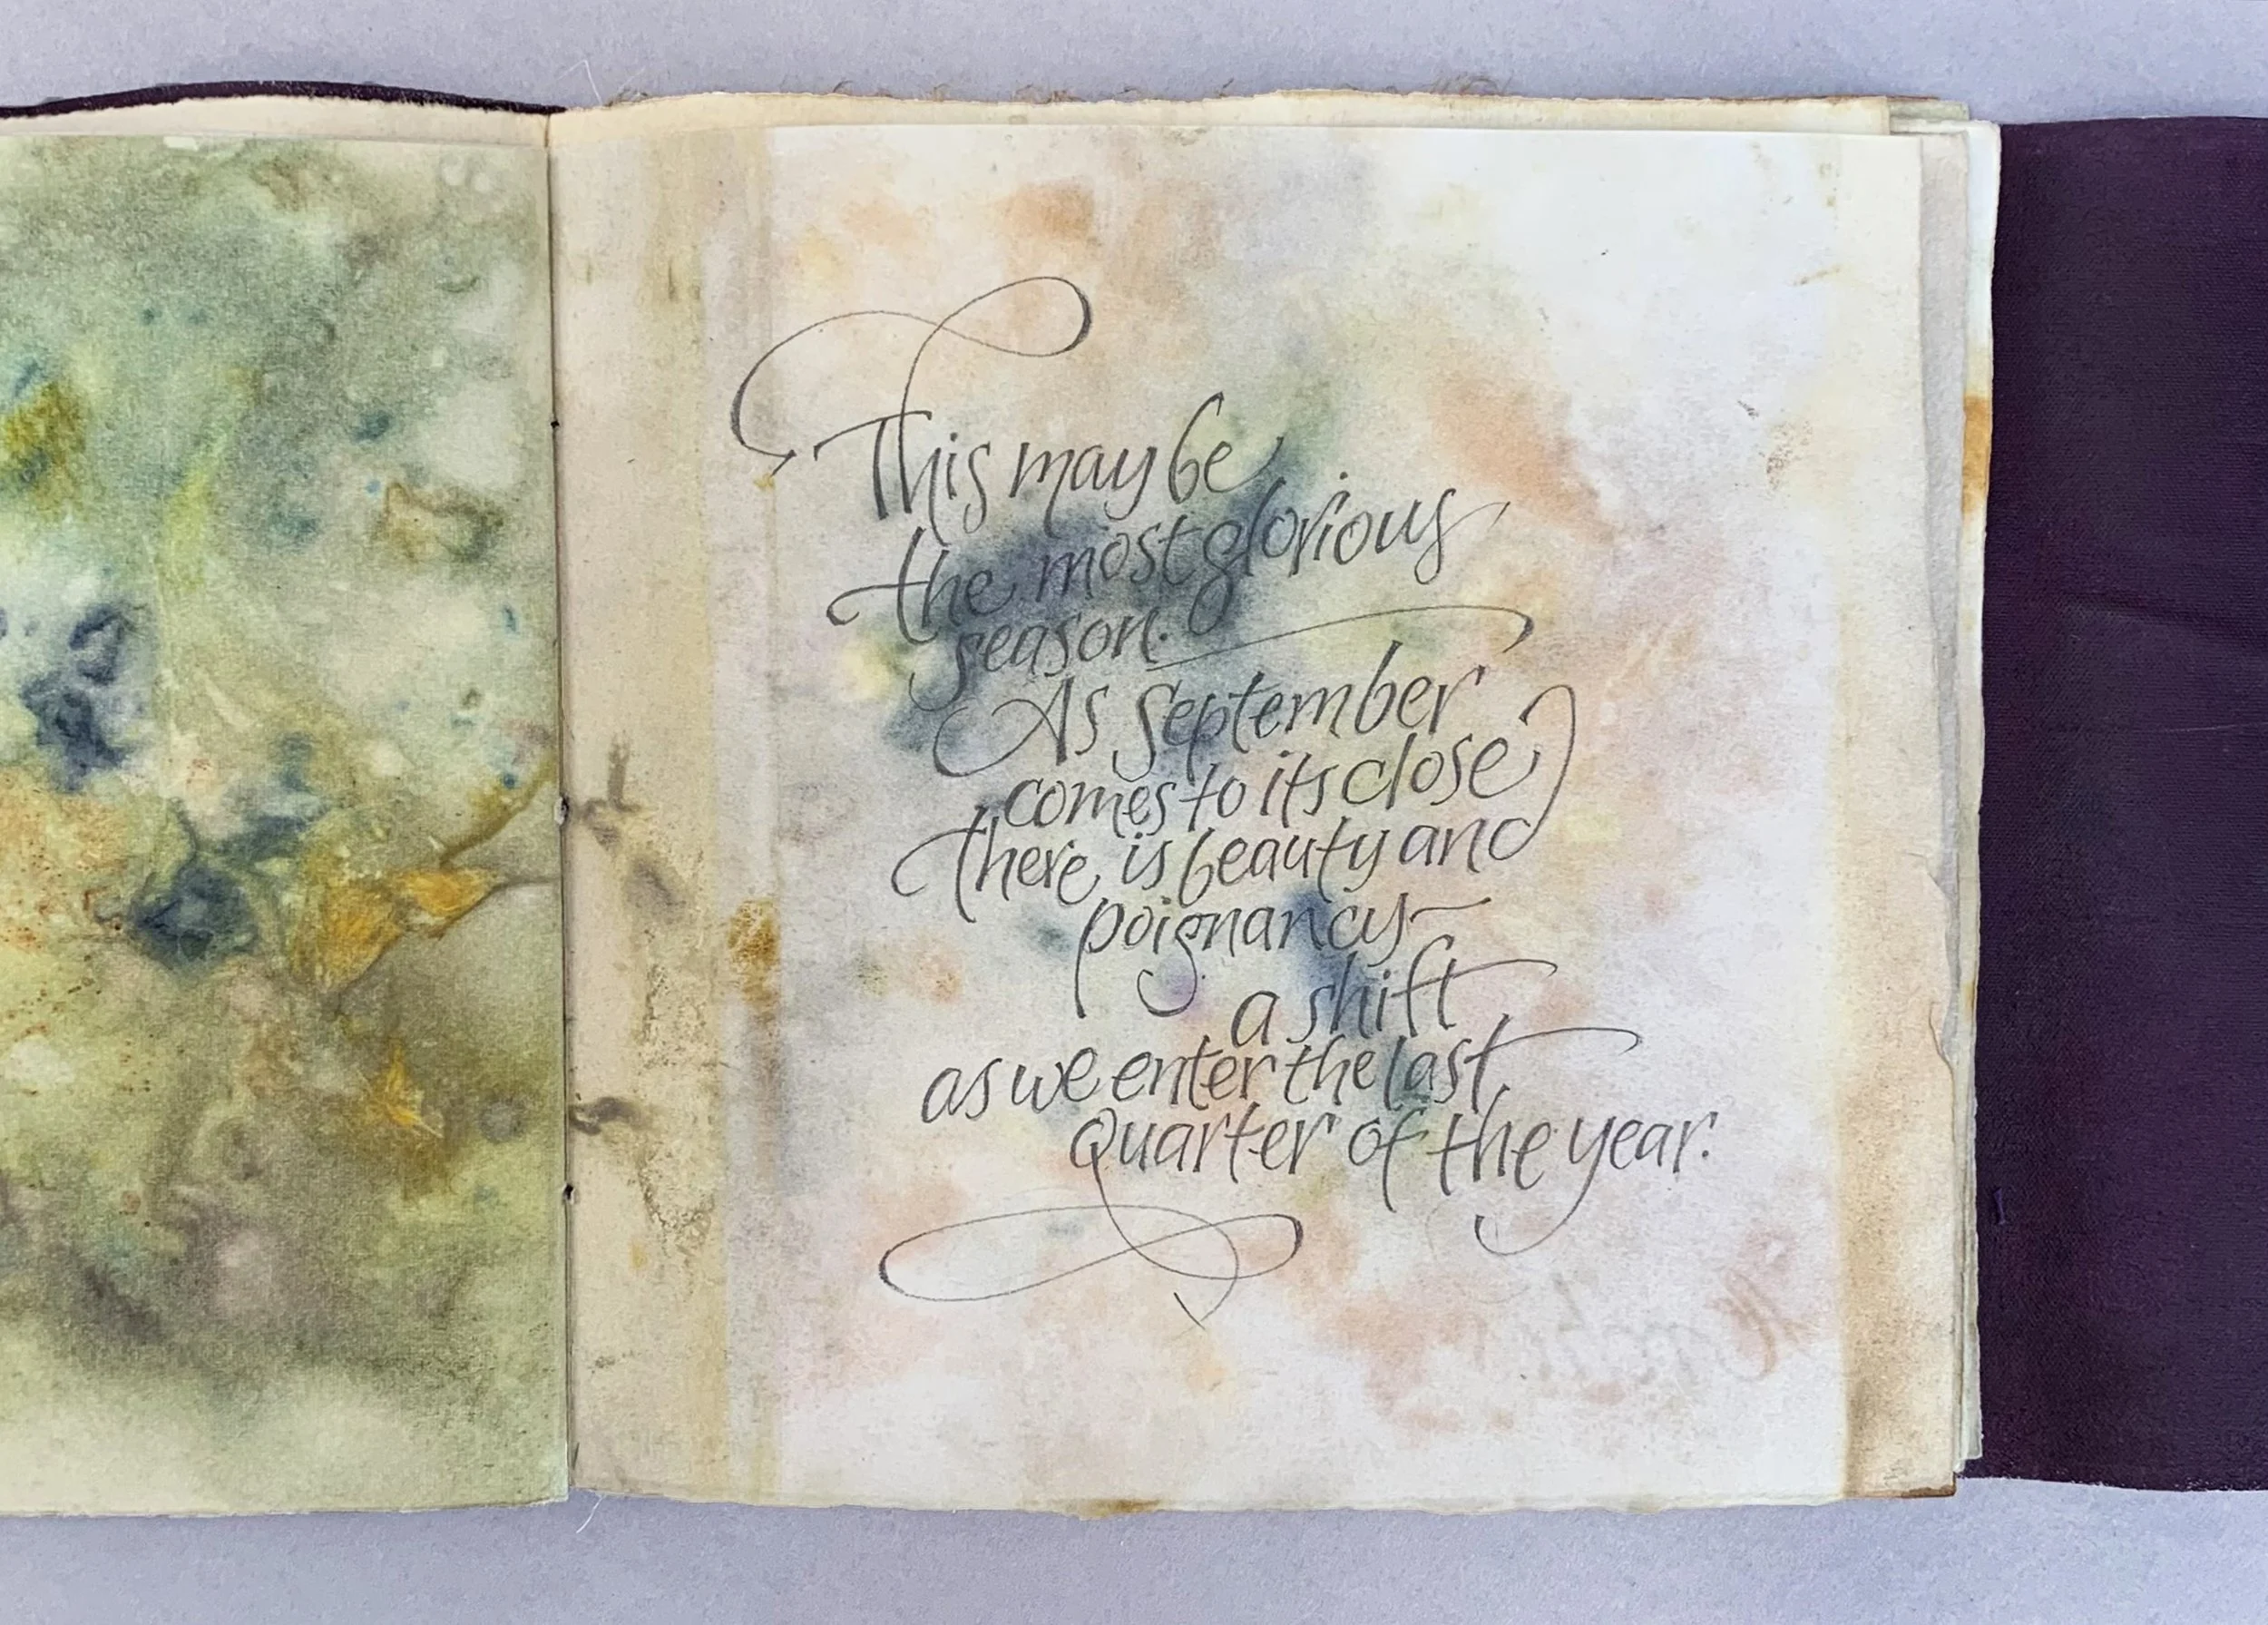 This may be
the most glorious
season.
As September
comes to its close
there is beauty and
poignancy –
a shift
as we enter the last
Quarter of the year.